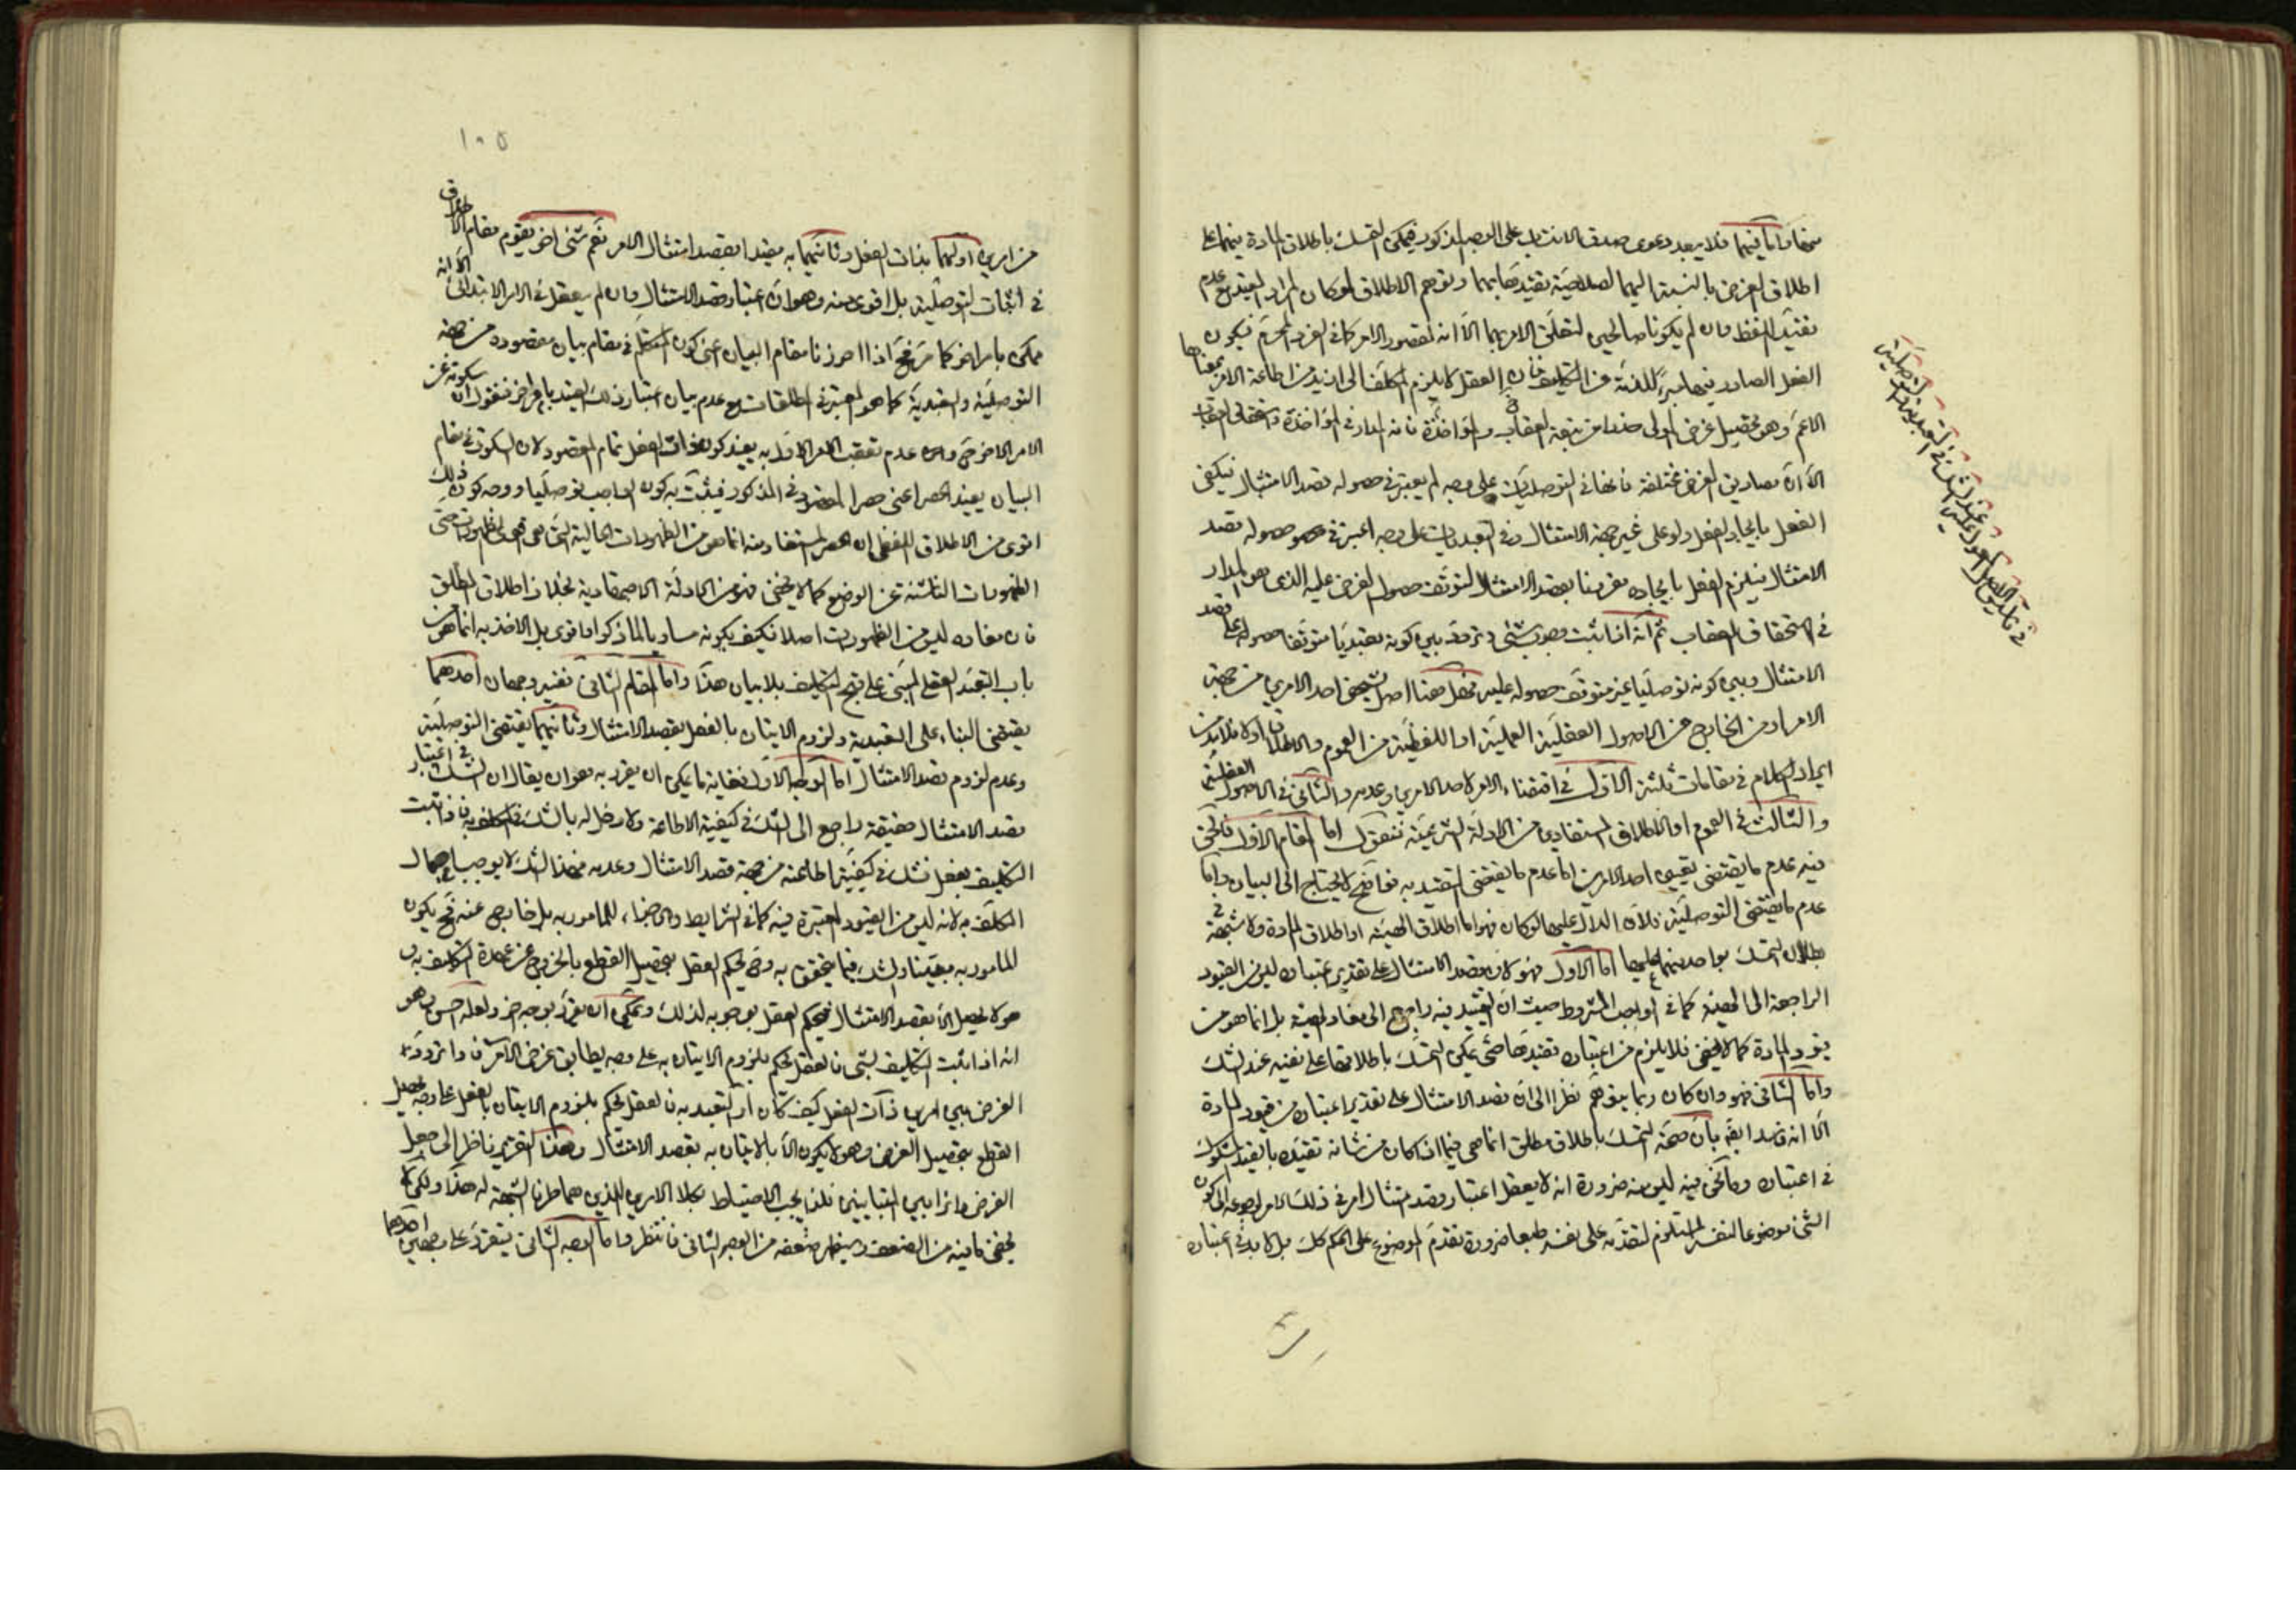 منها واما فيهما فلا يبعد دعوى صدق الامتثال على الوجه المذكور فيمكن التمسك باطلاق المادة فيهما على
اطلاق الغرض بالنسبة اليهما لصلاحية تقييدها بهما وتوهم الاطلاق لو كان المراد المقيد مع عدم
تقييد اللفظ وان لم يكونا صالحين لتعلق الامر بهما الا انه المقصود الامر كما في الفرد المحرم فيكون
الفعل الصادر فيهما مبرئا للذمة عن التكليف فان العقل لا يلزم المكلف الى ازيد من اطاعة الامر بمعناها
الاعم وهو تحصيل غرض المولى حذرا من تبعة العقاب والمؤاخذة فانه المدار في المؤاخذة واستحقاق العقاب
الا ان مصاديق الغرض مختلفة فانها في التوصليات على وجه لم يعتبر في حصوله قصد الامتثال فيكفي
الفعل بايجاد الفعل ولو على غير جهة الامتثال وفي التعبديات على وجه اعتبر في حصوله قصد
الامتثال فيلزم العقل بايجاده مقرونا بقصد الامتثال لتوقف حصول الغرض عليه الذي هو المدار
في استحقاق العقاب ثم انه اذا ثبت وجوب شيء وتردد بين كونه تعبديا متوقفا حصوله على قصد
الامتثال وبين كونه توصليا غير متوقف حصوله عليه فهل هنا اصل يشخص احد الامرين من جهة
الامر او من الخارج من الاصول العقلية العملية او اللفظية من العموم والاطلاق او لا فلا بد من
ايراد الكلام في مقامات ثلثة الاول في اقتضاء الامر لاحد الامرين وعدمه والثاني في الاصول العقلية
والثالث في العموم او الاطلاق المستفادين من الادلة الشرعية فنقول اما المقام الاول فالحق
فيه عدم ما يقتضي تعيين احد الامرين اما عدم ما يقتضي التعبدية فواضح لا يحتاج الى البيان واما
عدم ما يقتضي التوصلية فلان الدال عليها لو كان فهو اما اطلاق الهيئة او اطلاق المادة ولا شبهة في
بطلان التمسك بواحد منهما عليها اما الاول فهو لان قصد الامتثال على تقدير اعتباره ليس من القيود
الراجعة الى الهيئة كما في الواجب المشروط حيث ان القيد فيه راجع الى مفاد الهيئة بل انما هو من
قيود المادة كما لا يخفى فلا يلزم من اعتباره تقييدها حتى يمكن التمسك باطلاقها على نفيه عند الشك
واما الثاني فهو وان كان ربما يتوهم نظرا الى ان قصد الامتثال على تقدير اعتباره من قيود المادة
الا انه فاسد ايضا بان صحة التمسك باطلاق مطلق انما هي فيما اذا كان من شانه تقييده بالقيد المشكوك
في اعتباره وما نحن فيه ليس منه ضرورة انه لا يعقل اعتبار قصد امتثال امر في ذلك الامر لرجوعه الى كون
الشيء موضوعا لنفسه المستلزم لتقدمه على نفسه طبعا ضرورة تقدم الموضوع على الحكم كك بل لا بد في اعتباره
١٠٥
من امرين اولهما بذات الفعل وثانيهما به مقيدا بقصد امتثال الامر نعم شيء اخر يقوم مقام الاطلاق
في اثبات التوصلية بل اقوى منه وهو ان اعتبار قصد الامتثال وان لم يعقل في الامر الابتدائي الا انه
ممكن بامر اخر كما مر فح اذا احرزنا مقام البيان اعنى كون المتكلم في مقام بيان مقصوده من جهة
التوصلية والتعبدية كما هو المعتبر في المطلقات مع عدم بيان اعتبار ذلك القيد بامر اخر فنقول ان سكوته عن
الامر الاخر وعدم تعقب الامر الاول به يفيد كون ذات الفعل تمام المقصود لان السكوت في مقام
البيان يفيد الحصر اعنى حصر المقصود في المذكور فيثبت به كون الواجب توصليا ووجه كون ذلك
اقوى من الاطلاق اللفظي ان الحصر المستفاد منه انما هو من الظهورات الحالية التي هي اقوى الظهورات حتى
الظهورات الناشئة عن الوضع كما لا يخفى فهو من الادلة الاجتهادية بخلاف اطلاق المطلق
فان مفاده ليس من الظهورات اصلا فكيف بكونه مساويا لما ذكر او اقوى بل الاخذ به انما هو من
باب التعبد العقلي المبني على قبح التكليف بلا بيان هذا واما المقام الثاني ففيه وجهان احدهما
يقتضي البناء على التعبدية ولزوم الاتيان بالفعل بقصد الامتثال وثانيهما يقتضي التوصلية
وعدم لزوم قصد الامتثال اما الوجه الاول فغاية ما يمكن ان يقرر به هو ان يقال ان الشك في اعتبار
قصد الامتثال حقيقة راجع الى الشك في كيفية الاطاعة ولا دخل له بالشك في المكلف به فاذا ثبت
التكليف بفعل فشك في كيفية اطاعته من جهة قصد الامتثال وعدمه فهذا الشك لا يوجب اجمال
المكلف به لانه ليس من القيود المعتبرة فيه كما في الشرايط والاجزاء للمامور به بل خارج عنه فح يكون
المامور به مبينا والشك فيما يتحقق به وح يحكم العقل بتحصيل القطع بالخروج عن عهدة التكليف به
هو لا يحصل الا بقصد الامتثال فيحكم العقل بوجوبه لذلك ويمكن ان يقرر بوجه اخر ولعله احسن وهو
انه اذا ثبت التكليف بشيء فالعقل يحكم بلزوم الاتيان به على وجه يطابق غرض الامر فاذا تردد
الغرض بين امرين ذات الفعل كيف كان او التعبد به فالعقل يحكم بلزوم الاتيان بالفعل على وجه يحصل
القطع بتحصيل الغرض وهو لا يكون الا بالاتيان به بقصد الامتثال وهذا التقرير ناظر الى جعل
الغرض دائرا بين المتباينين فلذا يجب الاحتياط بكلا الامرين اللذين هما طرفا الشبهة له هذا ولكن لا
يخفى ما فيه من الضعف وسيظهر ضعفه من الوجه الثاني فانتظر واما الوجه الثاني فيتقرر على وجهين احدهما